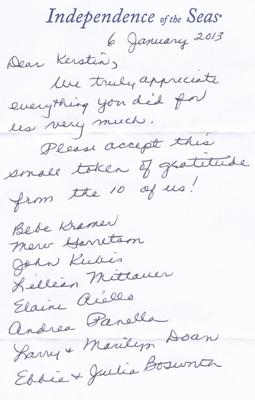 Independence of the Seas®
6 January 2013
Dear Kerstin,
We truly appreciate
everything you did for
us very much.
Please accept this
small token of gratitude
from the 10 of us!
Bebe Kramer
Merv Garretson
John Kubis
Lillian Mittauer
Elaine Aiello
Andrea Panella
Larry & Marilyn Doan
Ebbie & Julia Bosworth